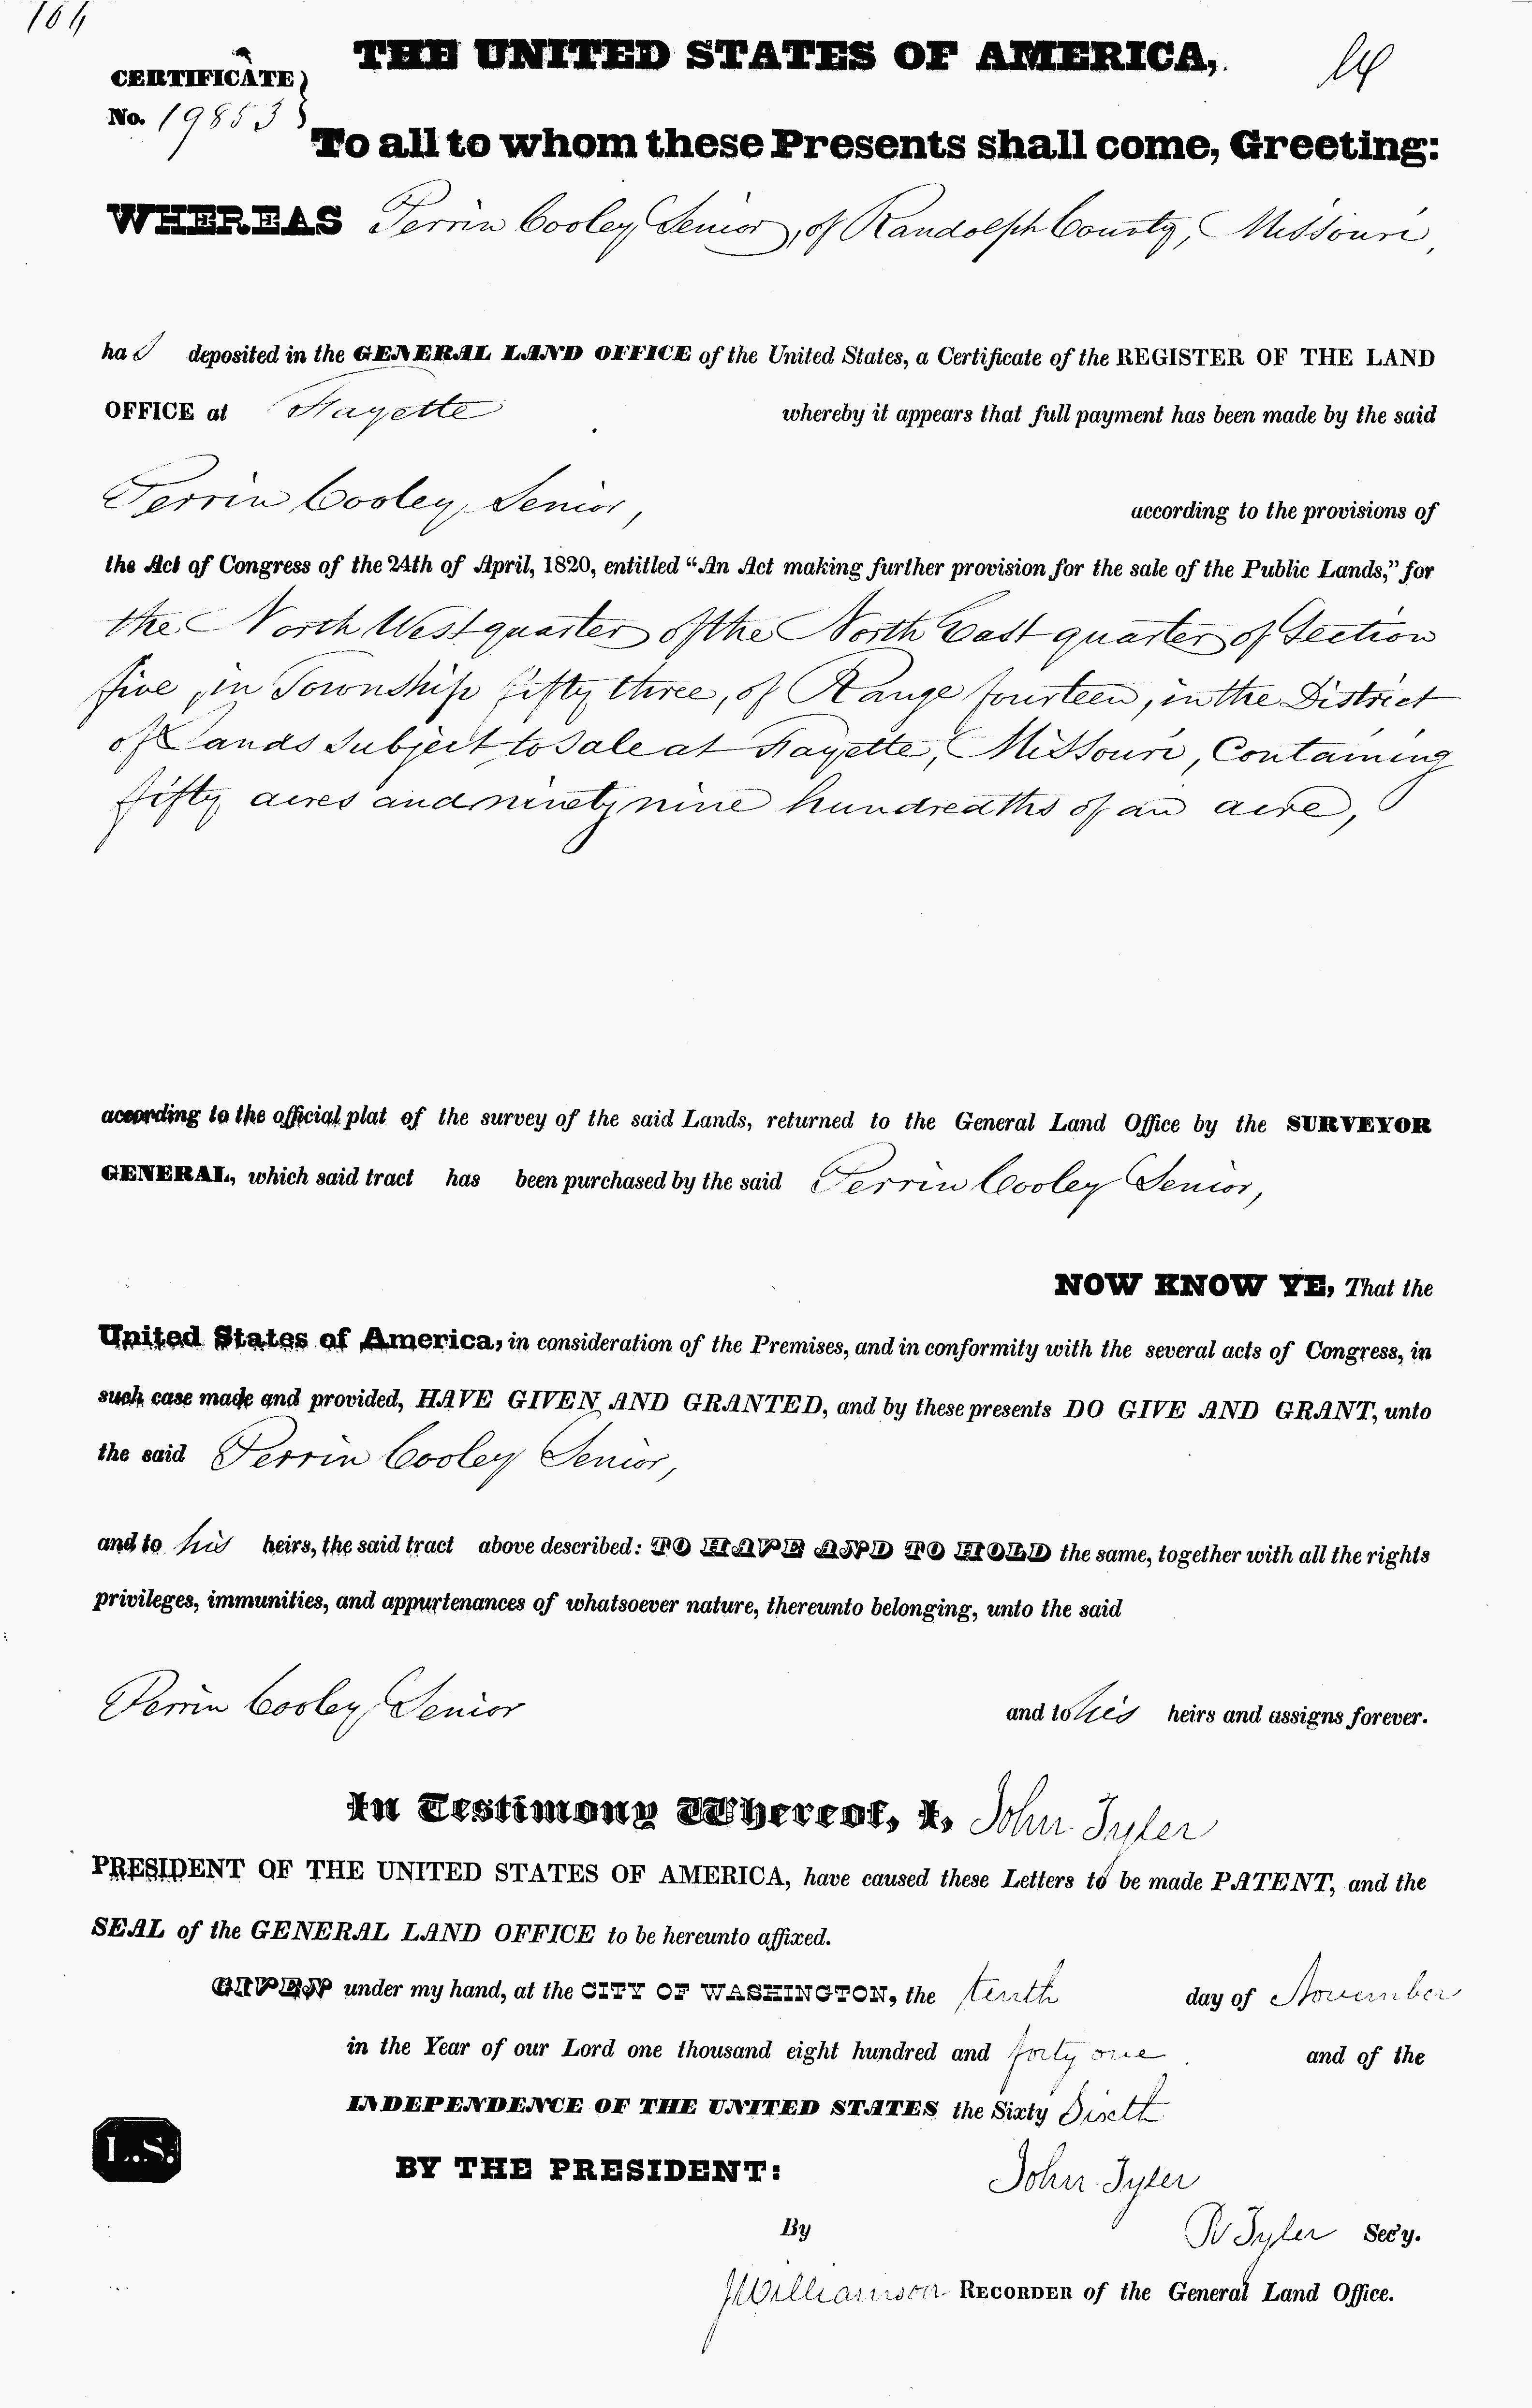 104
THE UNITED STATES OF AMERICA,
CERTIFICATE
No. 19853
To all to whom these Presents shall come, Greeting:
WHEREAS Perrin Cooley Senior, of Randolph County, Missouri,
has deposited in the GENERAL LAND OFFICE of the United States, a Certificate of the REGISTER OF THE LAND
OFFICE at Fayette whereby it appears that full payment has been made by the said
Perrin Cooley, Senior, according to the provisions of
the Act of Congress of the 24th of April, 1820, entitled "An Act making further provision for the sale of the Public Lands," for
the North West quarter of the North East quarter of Section
five, in Township fifty three, of Range fourteen, in the District
of Lands subject to sale at Fayette, Missouri, Containing
fifty acres and ninety nine hundredths of an acre,
according to the official plat of the survey of the said Lands, returned to the General Land Office by the SURVEYOR
GENERAL, which said tract has been purchased by the said Perrin Cooley Senior,
NOW KNOW YE, That the
United States of America, in consideration of the Premises, and in conformity with the several acts of Congress, in
such case made and provided, HAVE GIVEN AND GRANTED, and by these presents DO GIVE AND GRANT, unto
the said Perrin Cooley Senior,
and to his heirs, the said tract above described: TO HAVE AND TO HOLD the same, together with all the rights
privileges, immunities, and appurtenances of whatsoever nature, thereunto belonging, unto the said
Perrin Cooley Senior and to his heirs and assigns forever.
In Testimony Whereof, I, John Tyler
PRESIDENT OF THE UNITED STATES OF AMERICA, have caused these Letters to be made PATENT, and the
SEAL of the GENERAL LAND OFFICE to be hereunto affixed.
GIVEN under my hand, at the CITY OF WASHINGTON, the tenth day of November
in the Year of our Lord one thousand eight hundred and forty one and of the
INDEPENDENCE OF THE UNITED STATES the Sixty Sixth
L.S.
BY THE PRESIDENT: John Tyler
By R Tyler Sec'y.
J Williamson RECORDER of the General Land Office.